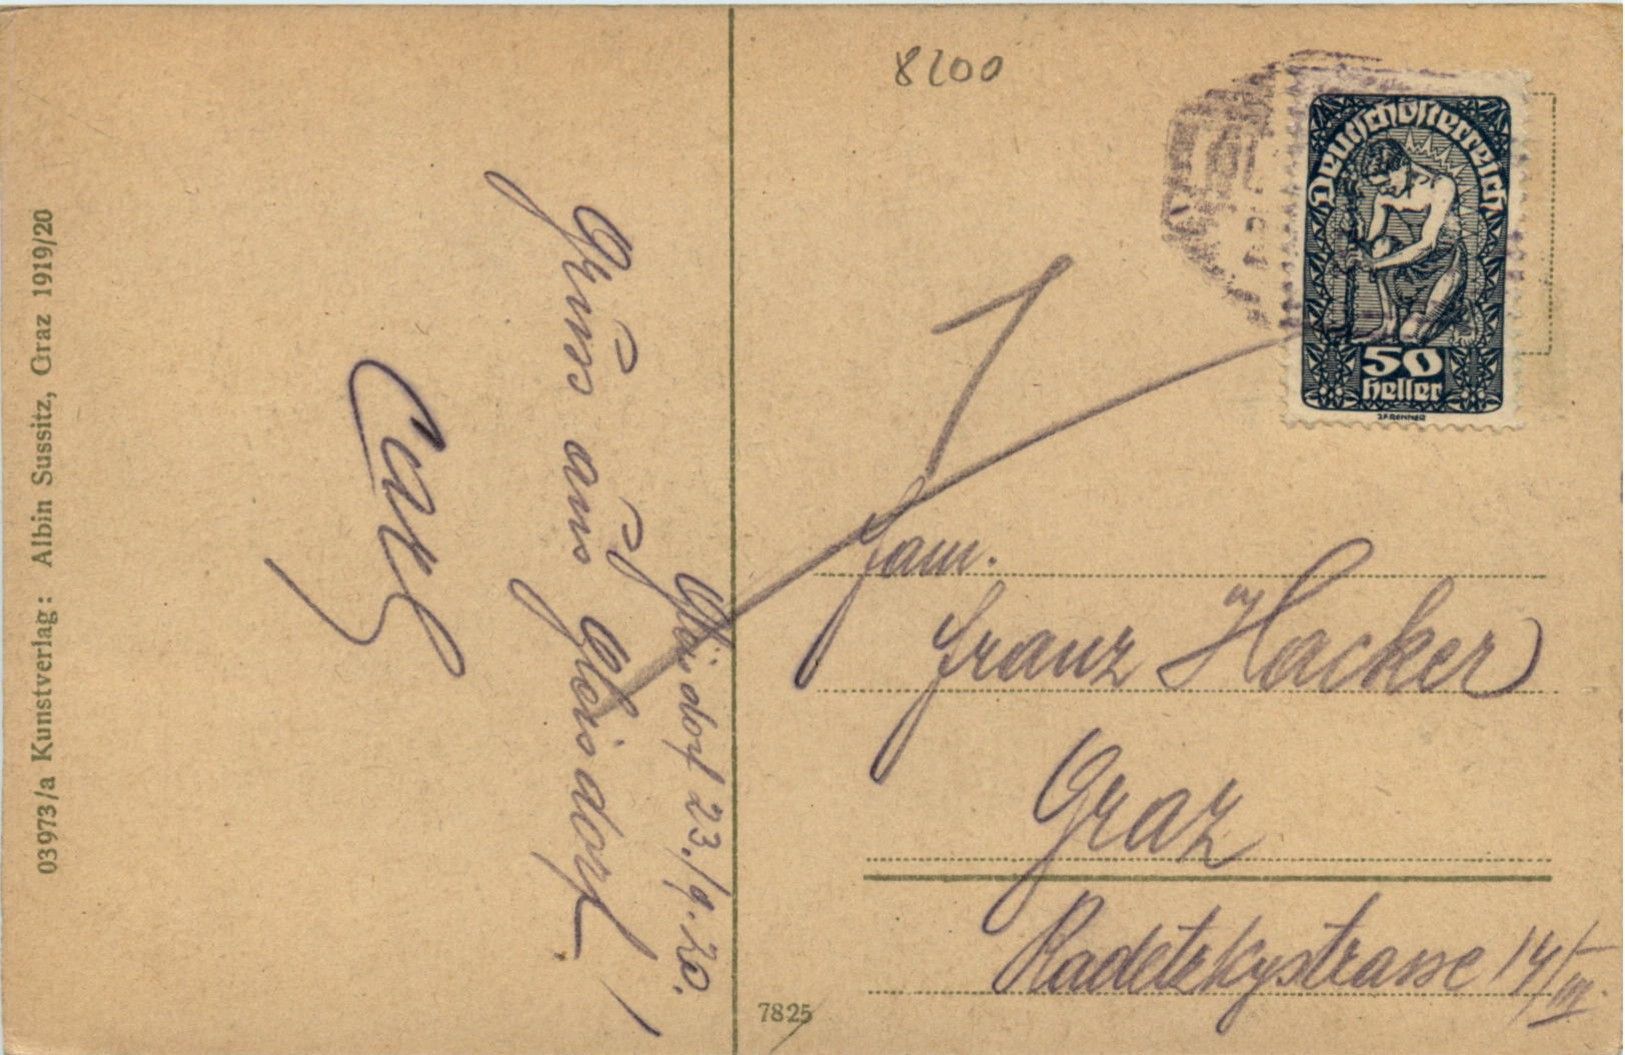 03973/a Kunstverlag: Albin Sussitz, Graz 1919/20
Gleisdorf 23./9.20.
Gruss aus Gleisdorf!
Carl
8200
Deutschösterreich
50
heller
Fam.
Franz Hacker
Graz
Radetzkystrasse 14/III.
7825